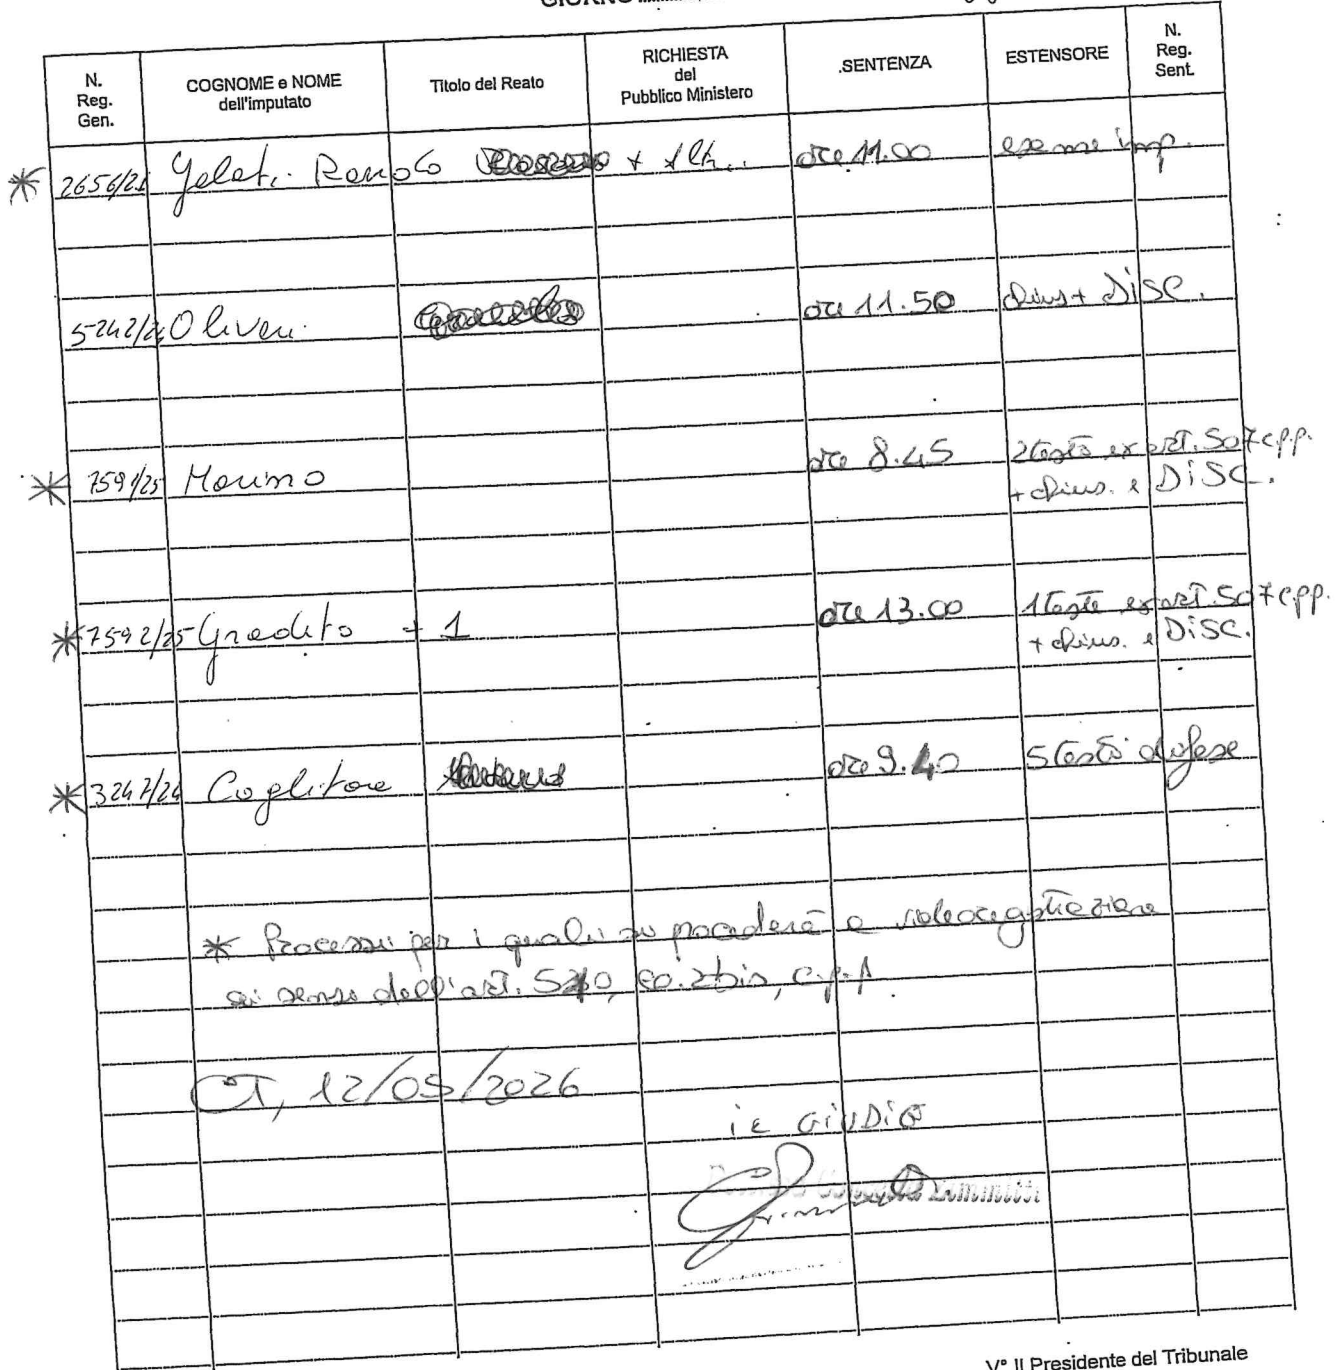 GIORNO
N. Reg. Gen.
COGNOME e NOME dell'imputato
Titolo del Reato
RICHIESTA del Pubblico Ministero
.SENTENZA
ESTENSORE
N. Reg. Sent.
* 2656/21 Gelati Renato + altri ore 11.00 esame imp.
5242/24 Oliveri ore 11.50 chius + DISC.
* 7591/25 ore 8.45 2 testi ex art. 507 c.p.p.
+ chius. e DISC.
* 7592/25 Gradito + 1 ore 13.00 1 teste ex art. 507 cpp.
+ chius. e DISC.
* 3247/24 Coglitore ore 9.40 5 testi difese
* Processi per i quali si procederà a videoregistrazione
ai sensi dell'art. 510, co. 2bis, c.p.p.
CT, 12/05/2026
il GIUDICE
V° Il Presidente del Tribunale